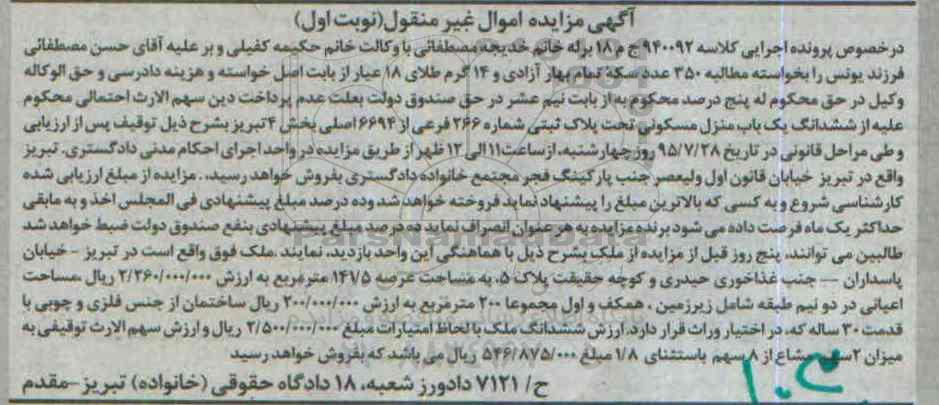 آگهی مزایده اموال غیر منقول(نوبت اول)
درخصوص پرونده اجرایی کلاسه ۹۴۰۰۹۲ ج م ۱۸ برله خانم خدیجه مصطفائی با وکالت خانم حکیمه کفیلی و بر علیه آقای حسن مصطفائی
فرزند یونس را بخواسته مطالبه ۳۵۰ عدد سکه تمام بهار آزادی و ۱۴ گرم طلای ۱۸ عیار از بابت اصل خواسته و هزینه دادرسی و حق الوکاله
وکیل در حق محکوم له پنج درصد محکوم به از بابت نیم عشر در حق صندوق دولت بعلت عدم پرداخت دین سهم الارث احتمالی محکوم
علیه از ششدانگ یک باب منزل مسکونی تحت پلاک ثبتی شماره ۲۶۶ فرعی از ۶۶۹۴ اصلی بخش ۴ تبریز بشرح ذیل توقیف پس از ارزیابی
و طی مراحل قانونی در تاریخ ۹۵/۷/۲۸ روز چهارشنبه، از ساعت ۱۱ الی ۱۲ ظهر از طریق مزایده در واحد اجرای احکام مدنی دادگستری. تبریز
واقع در تبریز خیابان قانون اول ولیعصر جنب پارکینگ فجر مجتمع خانواده دادگستری بفروش خواهد رسید، . مزایده از مبلغ ارزیابی شده
کارشناسی شروع و به کسی که بالاترین مبلغ را پیشنهاد نماید فروخته خواهد شد وده درصد مبلغ پیشنهادی فی المجلس اخذ و به مابقی
حداکثر یک ماه فرصت داده می شود برنده مزایده به هر عنوان انصراف نماید ده درصد مبلغ پیشنهادی بنفع صندوق دولت ضبط خواهد شد
طالبین می توانند، پنج روز قبل از مزایده از ملک بشرح ذیل با هماهنگی این واحد بازدید، نمایند .ملک فوق واقع است در تبریز - خیابان
پاسداران — جنب غذاخوری حیدری و کوچه حقیقت پلاک ۵، به مساحت عرصه ۱۴۷/۵ مترمربع به ارزش ۲/۳۶۰/۰۰۰/۰۰۰ ریال .مساحت
اعیانی در دو نیم طبقه شامل زیرزمین . همکف و اول مجموعا ۲۰۰ مترمربع به ارزش ۲۰۰/۰۰۰/۰۰۰ ریال ساختمان از جنس فلزی و چوبی با
قدمت ۳۰ ساله که، در اختیار وراث قرار دارد. ارزش ششدانگ ملک با لحاظ امتیازات مبلغ ۲/۵۰۰/۰۰۰/۰۰۰ ریال و ارزش سهم الارث توقیفی به
میزان ۲ سهم مشاع از ۸ سهم باستثنای ۱/۸ مبلغ ۵۴۶/۸۷۵/۰۰۰ ریال می باشد که بفروش خواهد رسید
ح/ ۷۱۲۱ دادورز شعبه، ۱۸ دادگاه حقوقی (خانواده) تبریز -مقدم
ParsNamadData